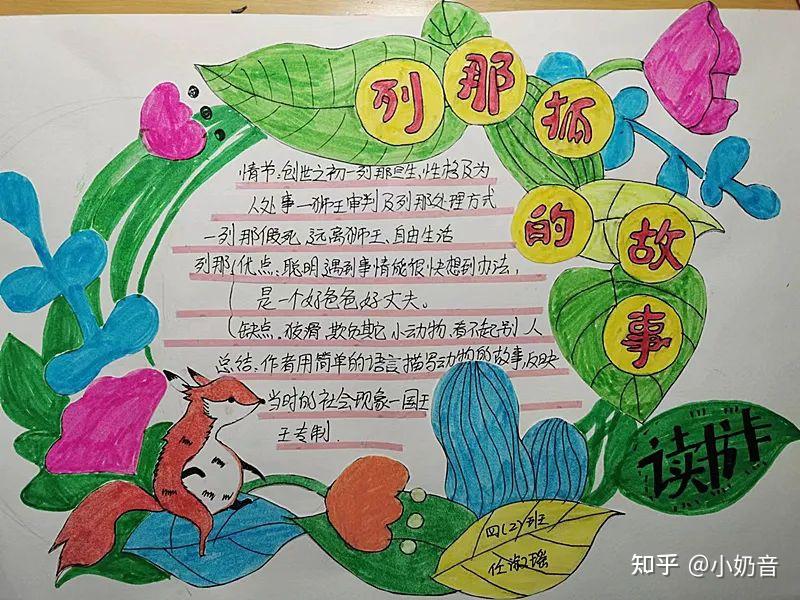 列那狐的故事
情节:创世之初—列那诞生、性格及为
人处事—狮王审判及列那处理方式
—列那假死、远离狮王、自由生活
列那 优点、聪明、遇到事情能很快想到办法,
是一个好爸爸,好丈夫。
缺点、狡猾、欺负其它小动物、看不起别人
总结、作者用简单的语言描写动物的故事反映
当时的社会现象—国王
王专制.
读书卡
四(2)班
任淑瑶
知乎 @小奶音